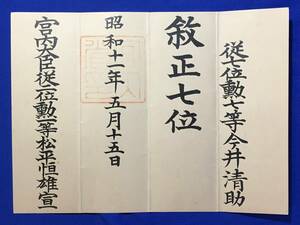 従七位勲七等今井清助
敘正七位
昭和十一年五月十五日
宮内大臣従一位勲一等松平恒雄宣